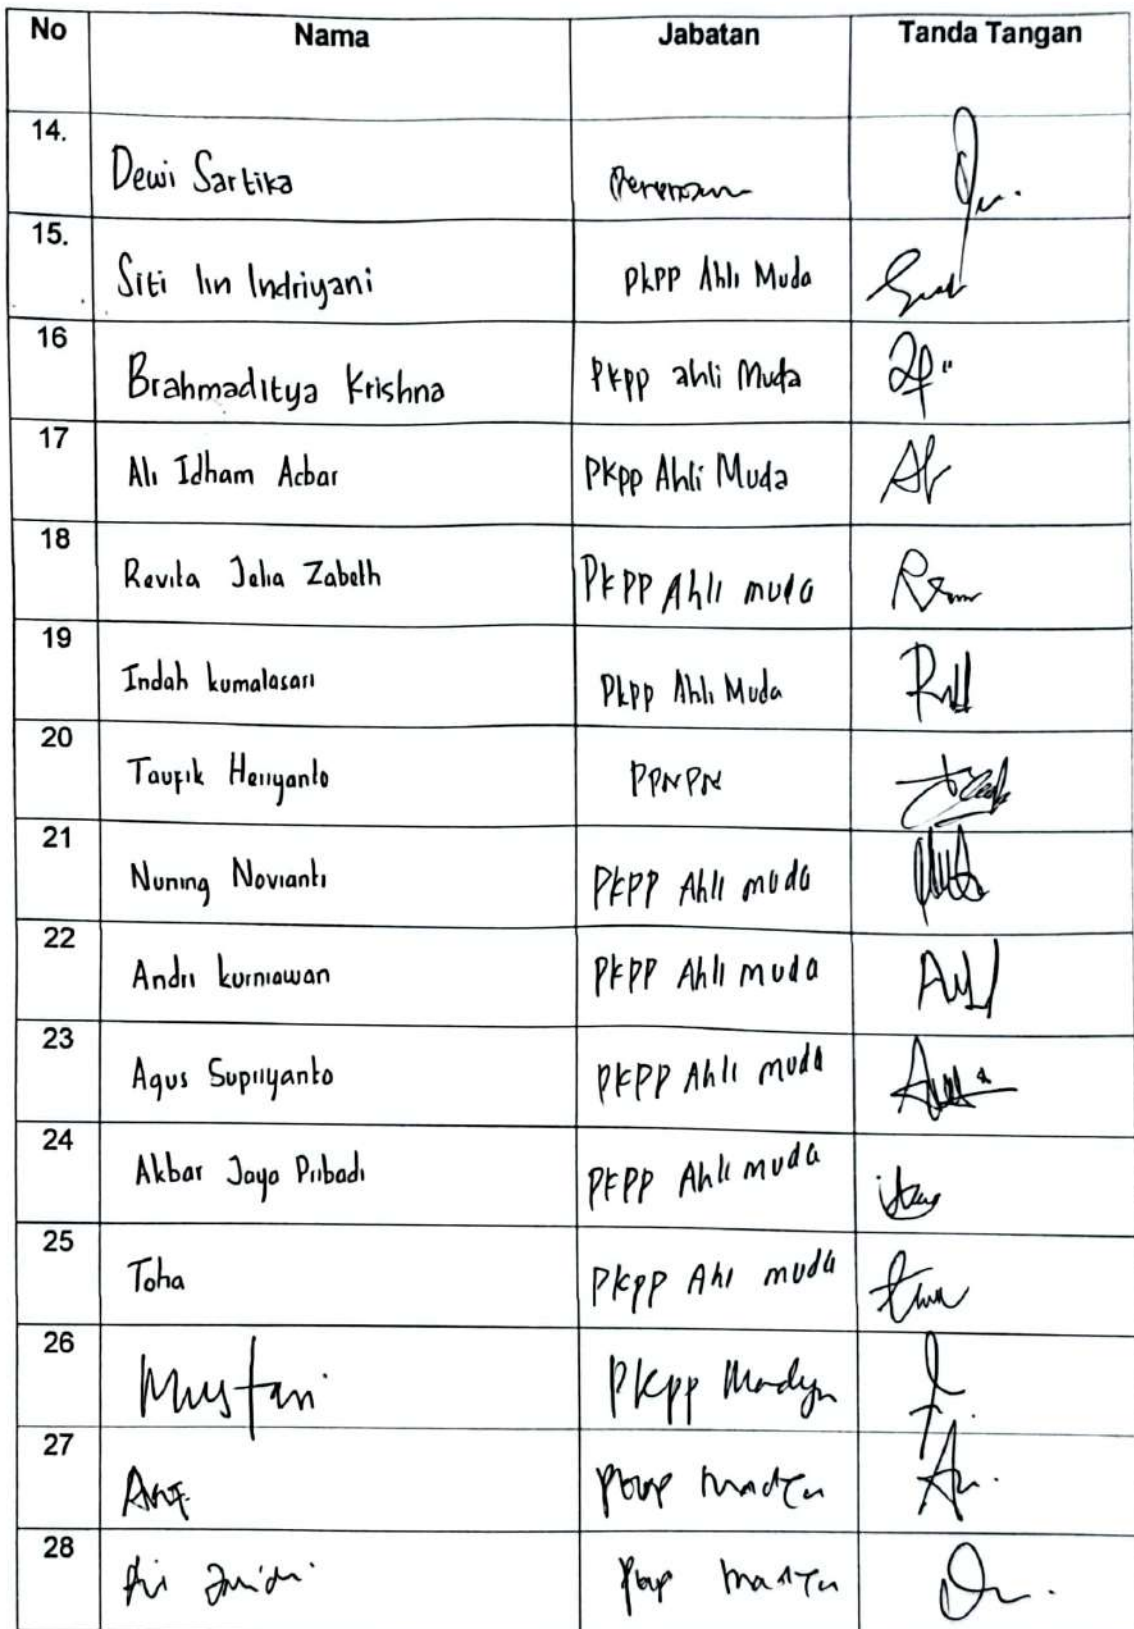 No Nama Jabatan Tanda Tangan
14. Dewi Sartika
15. Siti Iin Indriyani PkPP Ahli Muda
16 Brahmaditya Krishna PKPP ahli Muda
17 Ali Idham Acbar PKPP Ahli Muda
18 Revita Jelia Zabeth PKPP Ahli muda
19 Indah kumalasari PKPP Ahli Muda
20 Taufik Heriyanto PPNPN
21 Nuning Novianti PKPP Ahli muda
22 Andri kurniawan PKPP Ahli muda
23 Agus Supriyanto PKPP Ahli muda
24 Akbar Jaya Pribadi PKPP Ahli muda
25 Toha PKPP Ahi muda
26 Mustari PKPP Madya
27 Madya
28 Madya